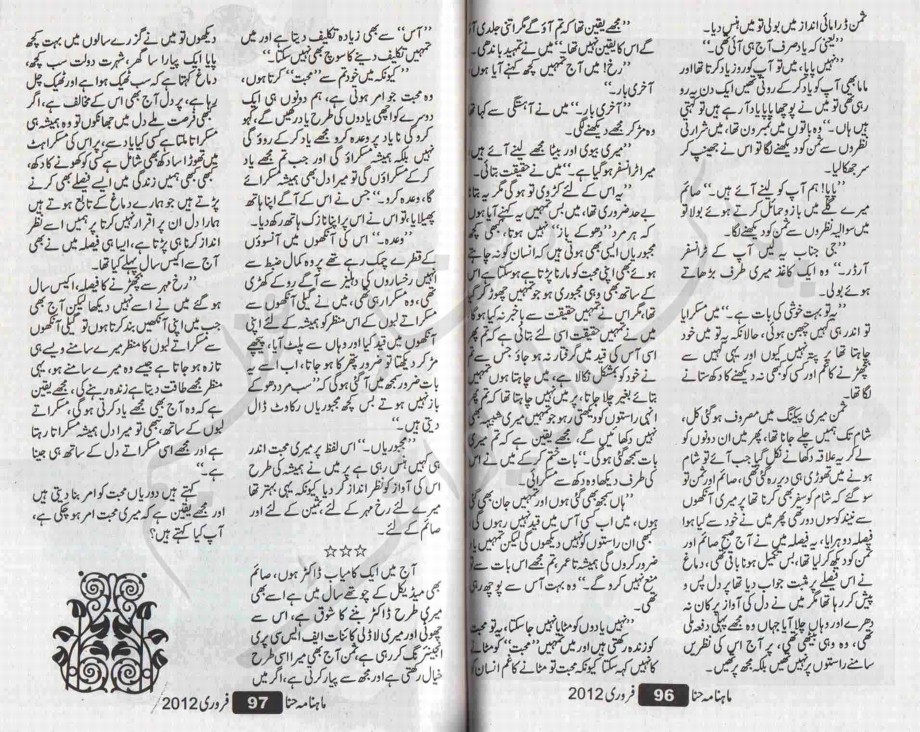 ثمن ڈرامائی انداز میں بولی تو میں ہنس دیا۔
”یعنی کہ یاد صرف آج ہی آئی تھی۔“
”نہیں پاپا، میں تو آپ کو روز یاد کرتا تھا اور
ماما بھی آپ کو یاد کر کے روتی تھیں ایک دن یہ رو
رہی تھی تو میں نے پوچھا پاپا یاد آ رہے ہیں تو کہتی
ہیں ہاں۔“ وہ باتوں میں نمبر ون تھا، میں شرارتی
نظروں سے ثمن کو دیکھنے لگا تو اس نے جھینپ کر
سر جھکا لیا۔
”پاپا! ہم آپ کو لینے آئے ہیں۔“ صائم
میرے گلے میں بازو حمائل کرتے ہوئے بولا تو
میں سوالیہ نظروں سے ثمن کو دیکھنے لگا۔
”جی جناب یہ لیں آپ کے ٹرانسفر
آرڈر۔“ وہ ایک کاغذ میری طرف بڑھاتے
ہوئے بولی۔
”یہ تو بہت خوشی کی بات ہے۔“ میں مسکرایا
تو اندر ہی کہیں چبھن ہوئی، حالانکہ یہ تو میں خود
چاہتا تھا پر پتہ نہیں کیوں اور یہی کہیں سے
بچھڑنے کا غم اور کسی کو کبھی نہ دیکھنے کا دکھ ستانے
لگا تھا۔
ثمن میری پیکنگ میں مصروف ہو گئی کل،
شام تک ہمیں چلے جانا تھا، پھر میں ان دونوں کو
لے کر یہ علاقہ دکھانے نکل گیا جب آئے تو شام
ہونے میں تھوڑی ہی دیر رہ گئی تھی، صائم اور ثمن تو
سو گئے کہ شام کو سفر بھی کرنا تھا پر میری آنکھوں
سے نیند کوسوں دور تھی پھر میں نے خود سے کیا ہوا
فیصلہ دوہرایا، یہ فیصلہ میں نے آج صبح صائم اور
ثمن کو دیکھ کر لیا تھا، بس تکمیل ہونا باقی تھی، دماغ
نے اس فیصلے پر مثبت جواب دیا تھا پر دل پس و
پیش کر رہا تھا مگر میں نے دل کی آواز پر کان نہ
دھرے اور وہاں چلا آیا جہاں وہ مجھے پہلی دفعہ ملی
تھی، وہ وہی بیٹھی تھی، پر آج اس کی نظریں
سامنے راستوں پر نہیں تھیں بلکہ مجھ پر تھیں۔
”مجھے یقین تھا کہ تم آؤ گے مگر اتنی جلدی آ
گے اس کا یقین نہیں تھا۔“ میں نے تمہید باندھی۔
”رخ! میں آج تمہیں کچھ کہنے آیا ہوں
آخری بار۔“
”آخری بار۔“ میں نے آہستگی سے کہا تو
وہ مڑ کر مجھے دیکھنے لگی۔
”میری بیوی اور بیٹا مجھے لینے آئے ہیں،
میرا ٹرانسفر ہو گیا ہے۔“ میں نے حقیقت بتائی۔
”یہ اس کے لئے کڑوی تو ہو گی مگر یہ بتانا
بے حد ضروری تھا، میں بس تمہیں یہ کہنے آیا ہوں
کہ ہر مرد ”دھوکے باز“ نہیں ہوتا، کبھی کچھ
مجبوریاں ایسی بھی ہوتی ہیں کہ انسان کو نہ چاہتے
ہوئے بھی اپنی محبت کو مارنا پڑتا ہے ہو سکتا ہے اس
کے ساتھ بھی وہی مجبوری ہو جو تمہیں چھوڑ کر گیا
تھا، مگر اس نے تمہیں حقیقت سے باخبر نہ کیا ہو گا
میں نے تمہیں حقیقت اسی لئے بتائی ہے کہ تم پھر
اسی آس کی قید میں گرفتار نہ ہو جاؤ جس سے تم
نے خود کو بمشکل نکالا ہے، میں چاہتا ہوں تمہیں
بتائے بغیر چلا جاتا، پر میں نہیں چاہتا تھا کہ تم پھر
انہی راستوں کو دیکھتی رہو جو تمہیں میری شبیہہ بھی
نہیں دکھائیں گے، مجھے یقین ہے کہ تم میری
بات سمجھ گئی ہو گی۔“ بات ختم کر کے میں نے اس
کی طرف دیکھا وہ دکھ سے مسکرائی۔
”ہاں سمجھ بھی گئی ہوں اور تمہیں جان بھی گئی
ہوں، میں اب کسی آس میں قید نہیں رہوں گی،
کبھی ان راستوں کو نہیں دیکھوں گی لیکن تمہیں یاد
ضرور کروں گی ہمیشہ تا عمر، تم مجھے اس بات سے تو
منع نہیں کرو گے۔“ وہ بہت آس سے پوچھ رہی
تھی۔
”نہیں یادوں کو مٹایا نہیں جا سکتا، یہ تو محبت
کو زندہ رکھتی ہیں اور میں تمہیں ”محبت“ کو مٹانے
کا نہیں کہہ سکتا کیونکہ محبت تو مٹانے کا غم انسان کو
ماہنامہ حنا 96 فروری 2012
”آس“ سے بھی زیادہ تکلیف دیتا ہے اور میں
تمہیں تکلیف دینے کا سوچ بھی نہیں سکتا۔“
”کیونکہ میں خود تم سے ”محبت“ کرتا ہوں،
وہ محبت جو امر ہوتی ہے، ہم دونوں ہی ایک
دوسرے کو اچھی یادوں کی طرح یاد رکھیں گے، کہو
کرو گی نا یاد پر وعدہ کرو مجھے یاد کر کے روؤ گی
نہیں بلکہ ہمیشہ مسکراؤ گی اور جب تم مجھے یاد
کر کے مسکراؤ گی تو میرا دل بھی ہمیشہ مسکرائے
گا، وعدہ کرو۔“ جس نے اس کے آگے اپنا ہاتھ
پھیلایا، تو اس نے اس پر اپنا نازک ہاتھ رکھ دیا۔
”وعدہ۔“ اس کی آنکھوں میں آنسوؤں
کے قطرے چمک رہے تھے پر وہ کمال ضبط سے
انہیں رخساروں کی دہلیز سے آگے روکے کھڑی
تھی، وہ مسکرا رہی تھی، میں نے گیلی آنکھوں سے
مسکراتے لبوں کے اس منظر کو ہمیشہ کے لئے اپنی
آنکھوں میں قید کیا اور وہاں سے پلٹ آیا، پیچھے
مڑ کر دیکھتا تو ضرور پتھر کا ہو جاتا، اب اسے یہ
بات ضرور سمجھ میں آ گئی ہو گی کہ ”سب مرد دھوکے
باز نہیں ہوتے بس کچھ مجبوریاں رکاوٹ ڈال
دیتی ہیں۔“
”مجبوریاں۔“ اس لفظ پر میری محبت اندر
ہی کہیں ہنس رہی ہے پر میں نے ہمیشہ کی طرح
اس کی آواز کو نظر انداز کر دیا کیونکہ یہی بہتر تھا
میرے لئے رخ مہر کے لئے، ثمن کے لئے اور
صائم کے لئے۔
☆☆☆
آج میں ایک کامیاب ڈاکٹر ہوں، صائم
بھی میڈیکل کے چوتھے سال میں ہے اسے بھی
میری طرح ڈاکٹر بننے کا شوق ہے، اس سے
چھوٹی اور میری لاڈلی کائنات ایف ایس سی پری
انجینئرنگ کر رہی ہے، ثمن آج بھی میرا اسی طرح
خیال رکھتی ہے اور مجھ سے پیار کرتی ہے، اگر میں
دیکھوں تو میں نے گزرے سالوں میں بہت کچھ
پایا ایک پیارا سا گھر، شہرت دولت سب کچھ،
دماغ کہتا ہے کہ سب ٹھیک ہوا ہے اور ٹھیک چل
رہا ہے، پر دل آج بھی اس کے مخالف ہے، اگر
کبھی فرصت ملے دل میں جھانکوں تو وہ ہمیشہ ہی
مسکراتا ملتا ہے کسی کی یاد سے، پر اس کی مسکراہٹ
میں تھوڑا سا دکھ بھی شامل ہے کسی کو کھونے کا دکھ،
کبھی کبھی ہمیں زندگی میں ایسے فیصلے بھی کرنے
پڑتے ہیں جو ہمارے دماغ کے تابع ہوتے ہیں
ہمارا دل ان پر اقرار نہیں کرتا پر ہمیں اسے نظر
انداز کرنا ہی پڑتا ہے، ایسا ہی فیصلہ میں نے بھی
آج سے اکیس سال پہلے کیا تھا۔
”رخ مہر سے بچھڑنے کا فیصلہ، اکیس سال
ہو گئے میں نے اسے نہیں دیکھا لیکن آج بھی
جب میں اپنی آنکھیں بند کرتا ہوں تو گیلی آنکھوں
سے مسکراتے لبوں کا منظر میرے سامنے ویسے ہی
تازہ ہو جاتا ہے جیسے وہ میرے سامنے ہو، یہی
منظر مجھے طاقت دیتا ہے زندہ رہنے کی، مجھے یقین
ہے کہ وہ آج بھی مجھے یاد کرتی ہو گی، مسکراتے
لبوں کے ساتھ، تبھی تو میرا دل ہمیشہ مسکراتا رہتا
ہے اور مجھے اسی مسکراتے دل کے ساتھ ہی جینا
ہے۔“
کہتے ہیں دوریاں محبت کو امر بنا دیتی ہیں
اور مجھے یقین ہے کہ میری محبت امر ہو چکی ہے،
آپ کیا کہتے ہیں؟
ماہنامہ حنا 97 فروری 2012